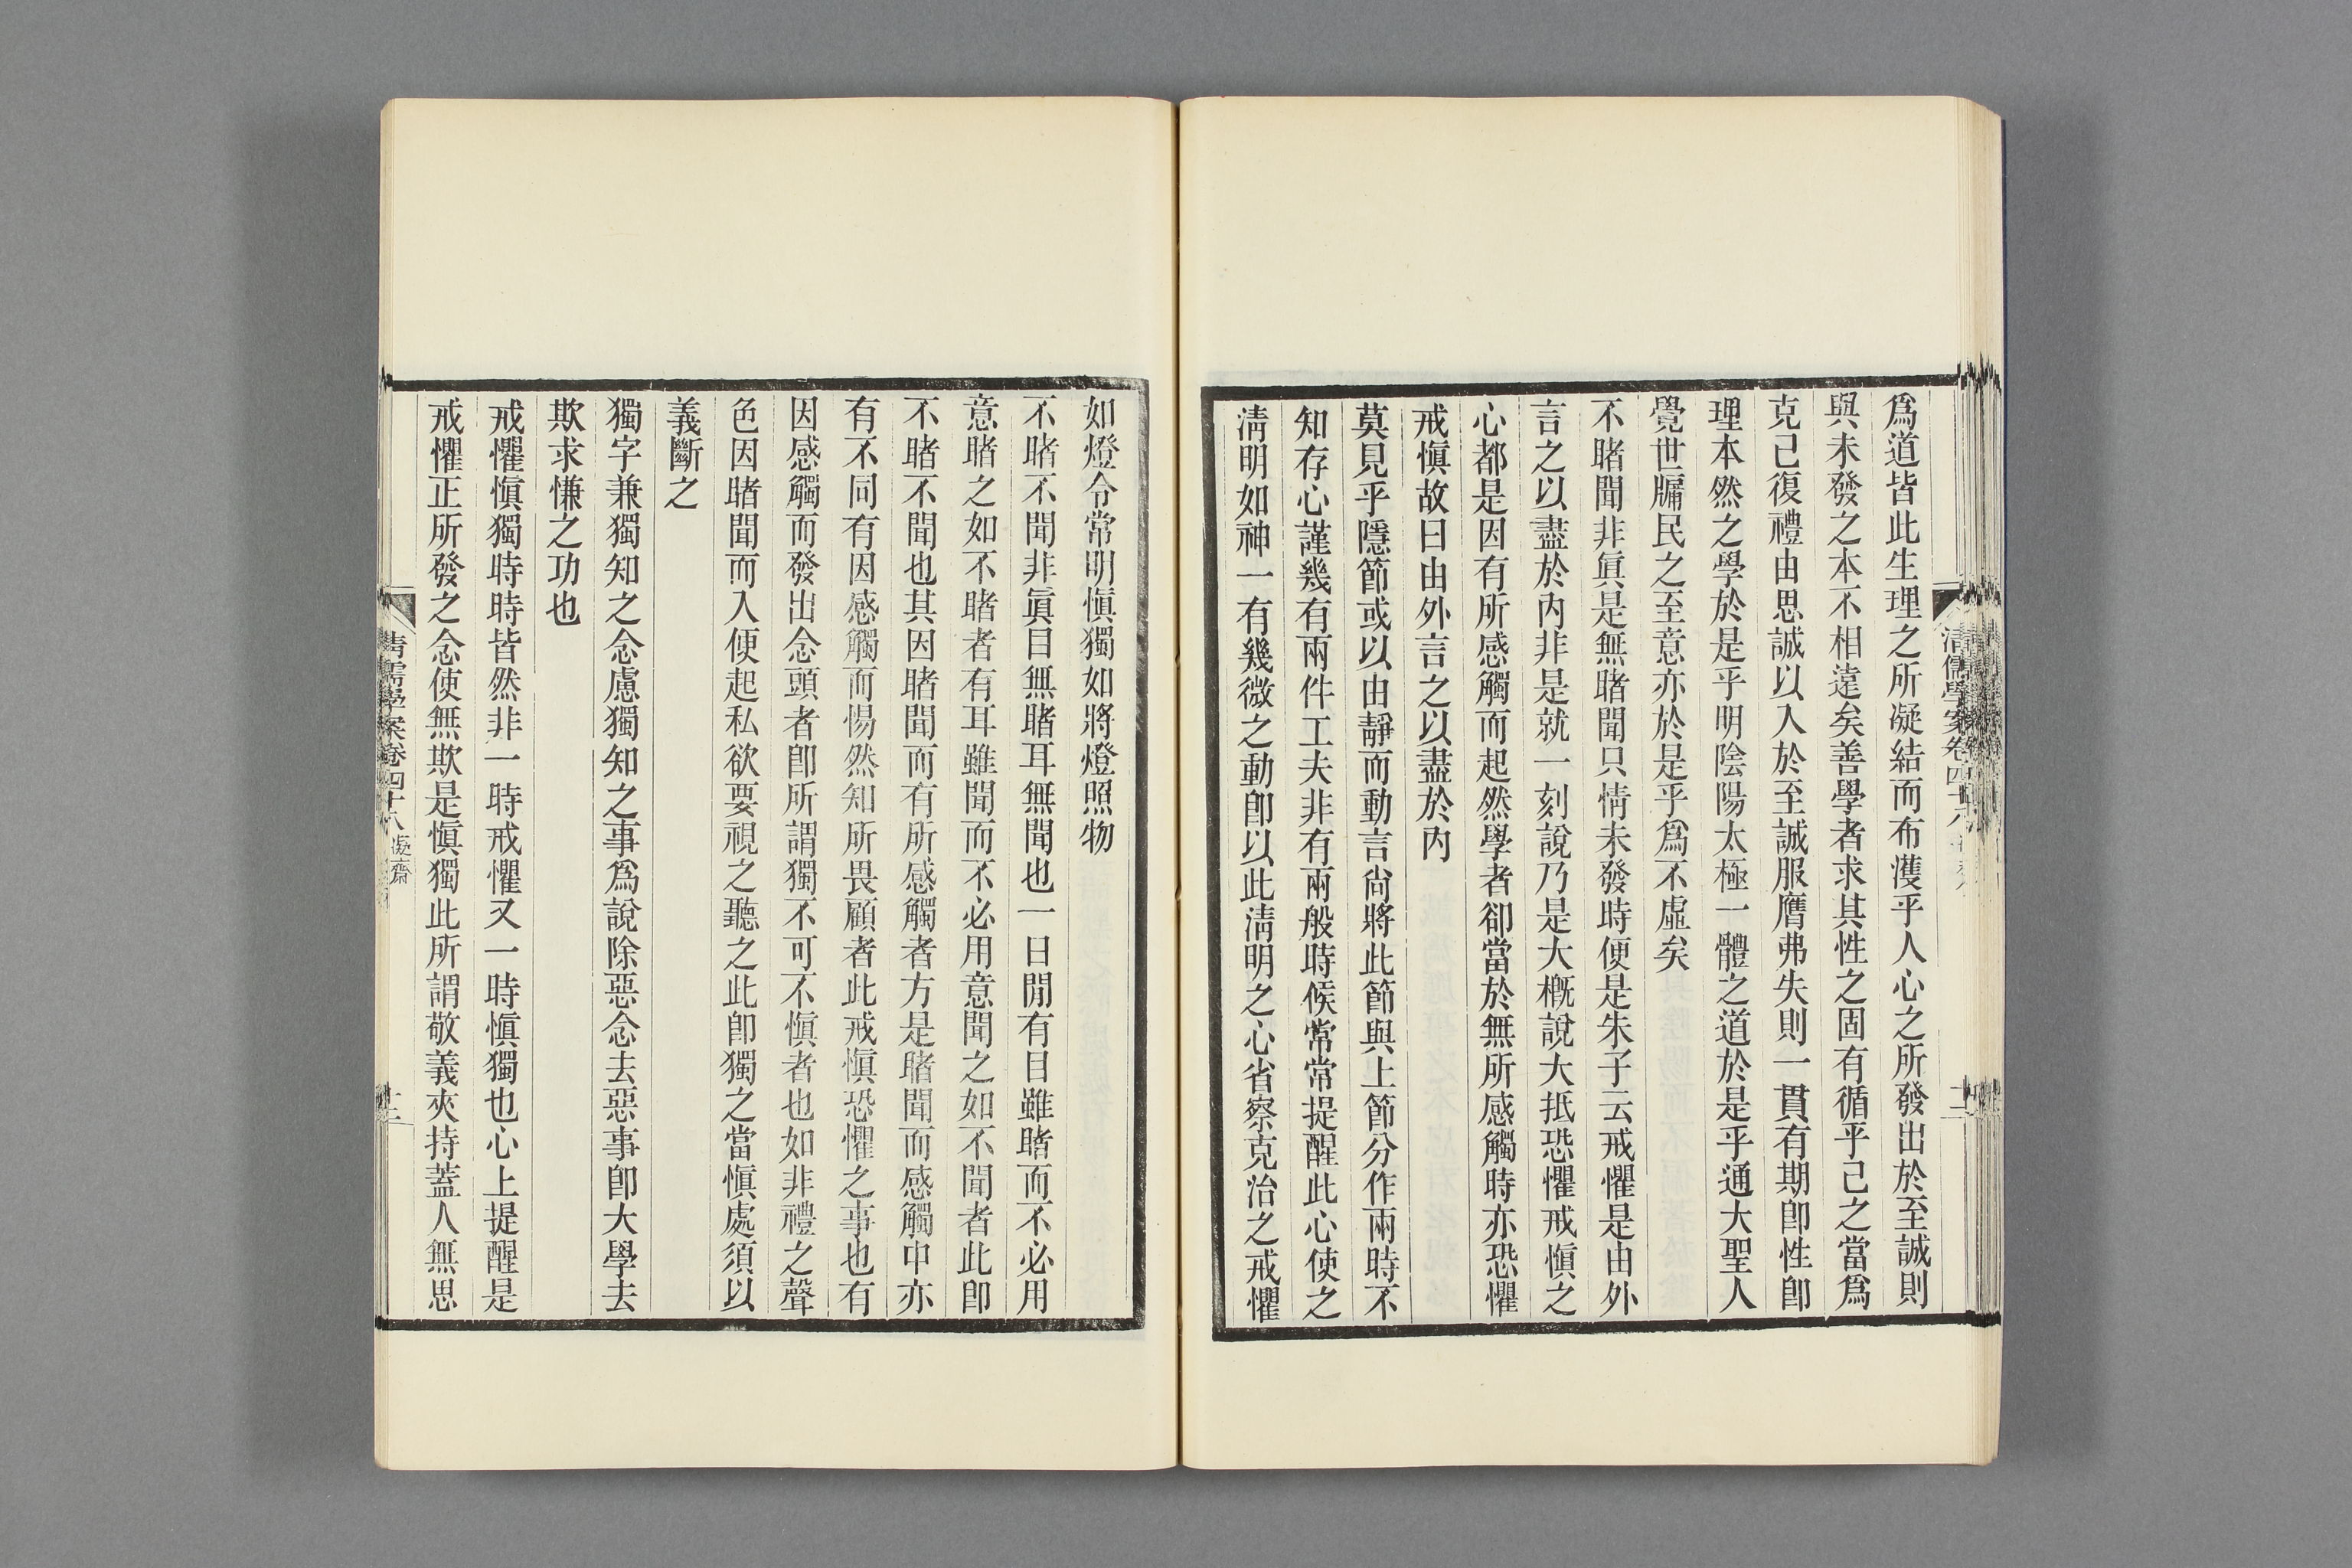 爲道皆此生理之所凝結而布濩乎人心之所發出於至誠則
與未發之本不相違矣善學者求其性之固有循乎己之當爲
克己復禮由思誠以入於至誠服膺弗失則一貫有期卽性卽
理本然之學於是乎明陰陽太極一體之道於是乎通大聖人
覺世牖民之至意亦於是乎爲不虛矣
不睹聞非眞是無睹聞只情未發時便是朱子云戒懼是由外
言之以盡於內非是就一刻說乃是大槪說大抵恐懼戒愼之
心都是因有所感觸而起然學者卻當於無所感觸時亦恐懼
戒愼故曰由外言之以盡於內
莫見乎隱節或以由靜而動言尙將此節與上節分作兩時不
知存心謹幾有兩件工夫非有兩般時候常常提醒此心使之
淸明如神一有幾微之動卽以此淸明之心省察克治之戒懼
清儒學案卷四十八
如燈令常明愼獨如將燈照物
不睹不聞非眞目無睹耳無聞也一日閒有目雖睹而不必用
意睹之如不睹者有耳雖聞而不必用意聞之如不聞者此卽
不睹不聞也其因睹聞而有所感觸者方是睹聞而感觸中亦
有不同有因感觸而惕然知所畏顧者此戒愼恐懼之事也有
因感觸而發出念頭者卽所謂獨不可不愼者也如非禮之聲
色因睹聞而入便起私欲要視之聽之此卽獨之當愼處須以
義斷之
獨字兼獨知之念慮獨知之事爲說除惡念去惡事卽大學去
欺求慊之功也
戒懼愼獨時時皆然非一時戒懼又一時愼獨也心上提醒是
戒懼正所發之念使無欺是愼獨此所謂敬義夾持蓋人無思
清儒學案卷四十八 凝齋
十二